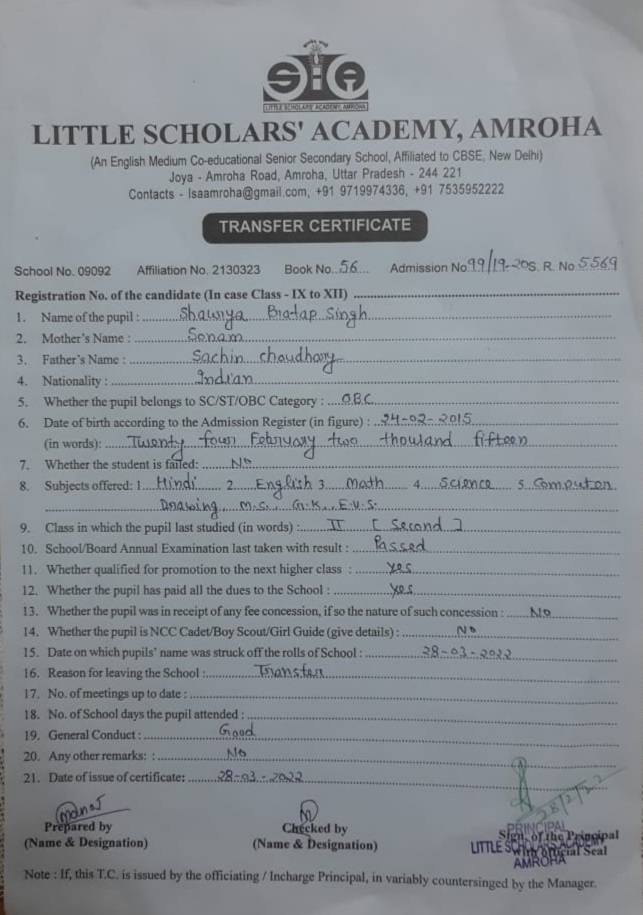 LITTLE SCHOLARS' ACADEMY, AMROHA
LITTLE SCHOLARS' ACADEMY, AMROHA
(An English Medium Co-educational Senior Secondary School, Affiliated to CBSE, New Delhi)
Joya - Amroha Road, Amroha, Uttar Pradesh - 244 221
Contacts - lsaamroha@gmail.com, +91 9719974336, +91 7535952222
TRANSFER CERTIFICATE
School No. 09092 Affiliation No. 2130323 Book No. 56 Admission No 99/19-20 S. R. No 5569
Registration No. of the candidate (In case Class - IX to XII)
1. Name of the pupil : Shaurya Pratap Singh
2. Mother's Name : Sonam
3. Father's Name : Sachin Choudhary
4. Nationality : Indian
5. Whether the pupil belongs to SC/ST/OBC Category : OBC
6. Date of birth according to the Admission Register (in figure) : 24-02-2015
(in words): Twenty four February two thousand fifteen
7. Whether the student is failed: No
8. Subjects offered: 1 Hindi 2 English 3 Math 4 Science 5 Computer
Drawing, M.S., G.K., E.V.S.
9. Class in which the pupil last studied (in words) : II [ Second ]
10. School/Board Annual Examination last taken with result : Passed
11. Whether qualified for promotion to the next higher class : yes
12. Whether the pupil has paid all the dues to the School : yes
13. Whether the pupil was in receipt of any fee concession, if so the nature of such concession : No
14. Whether the pupil is NCC Cadet/Boy Scout/Girl Guide (give details) : No
15. Date on which pupils' name was struck off the rolls of School : 28-03-2022
16. Reason for leaving the School : Transfer
17. No. of meetings up to date :
18. No. of School days the pupil attended :
19. General Conduct : Good
20. Any other remarks: : No
21. Date of issue of certificate: 28-03-2022
Manoj
28/2/22
Prepared by Checked by Sign. of the Principal
(Name & Designation) (Name & Designation) with official Seal
PRINCIPAL
LITTLE SCHOLARS ACADEMY
AMROHA
Note : If, this T.C. is issued by the officiating / Incharge Principal, in variably countersinged by the Manager.